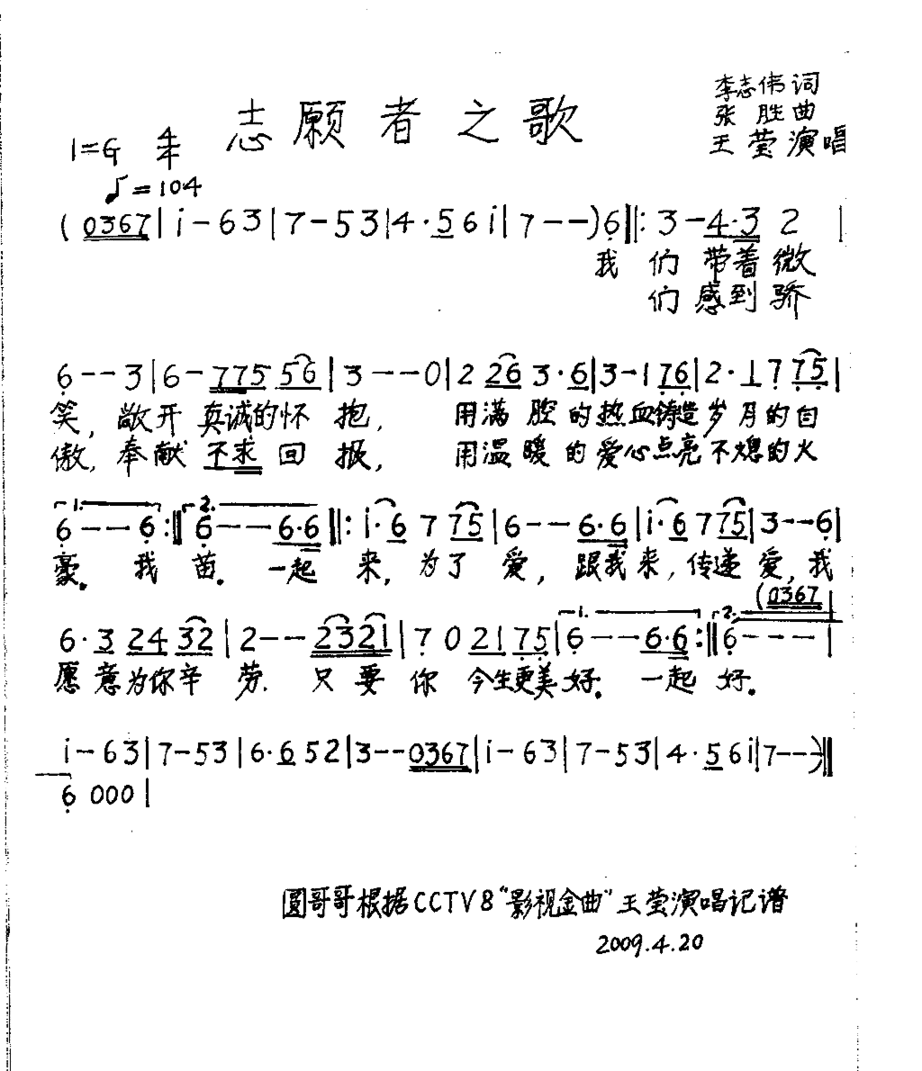 志愿者之歌
李志伟词
张胜曲
王莹演唱
1=G 4/4
♩=104
(0367|i-63|7-53|4·56i|7--)6‖:3-4·32|
我们带着微
们感到骄
6--3|6-77556|3--0|2263·6|3-176|2·1775|
笑,敞开真诚的怀抱,用满腔的热血铸造岁月的自
傲,奉献不求回报,用温暖的爱心点亮不熄的火
1. 2.
6--6:‖6--6·6‖:i·6775|6--6·6|i·6775|3--6|
豪。我苗。一起来,为了爱,跟我来,传递爱,我
1. 2. (0367
6·32432|2--2321|702175|6--6·6:‖6---|
愿意为你辛劳.只要你今生更美好。一起好。
i-63|7-53|6·652|3--0367|i-63|7-53|4·56i|7--)‖
6000|
圆哥哥根据CCTV8"影视金曲"王莹演唱记谱
2009.4.20